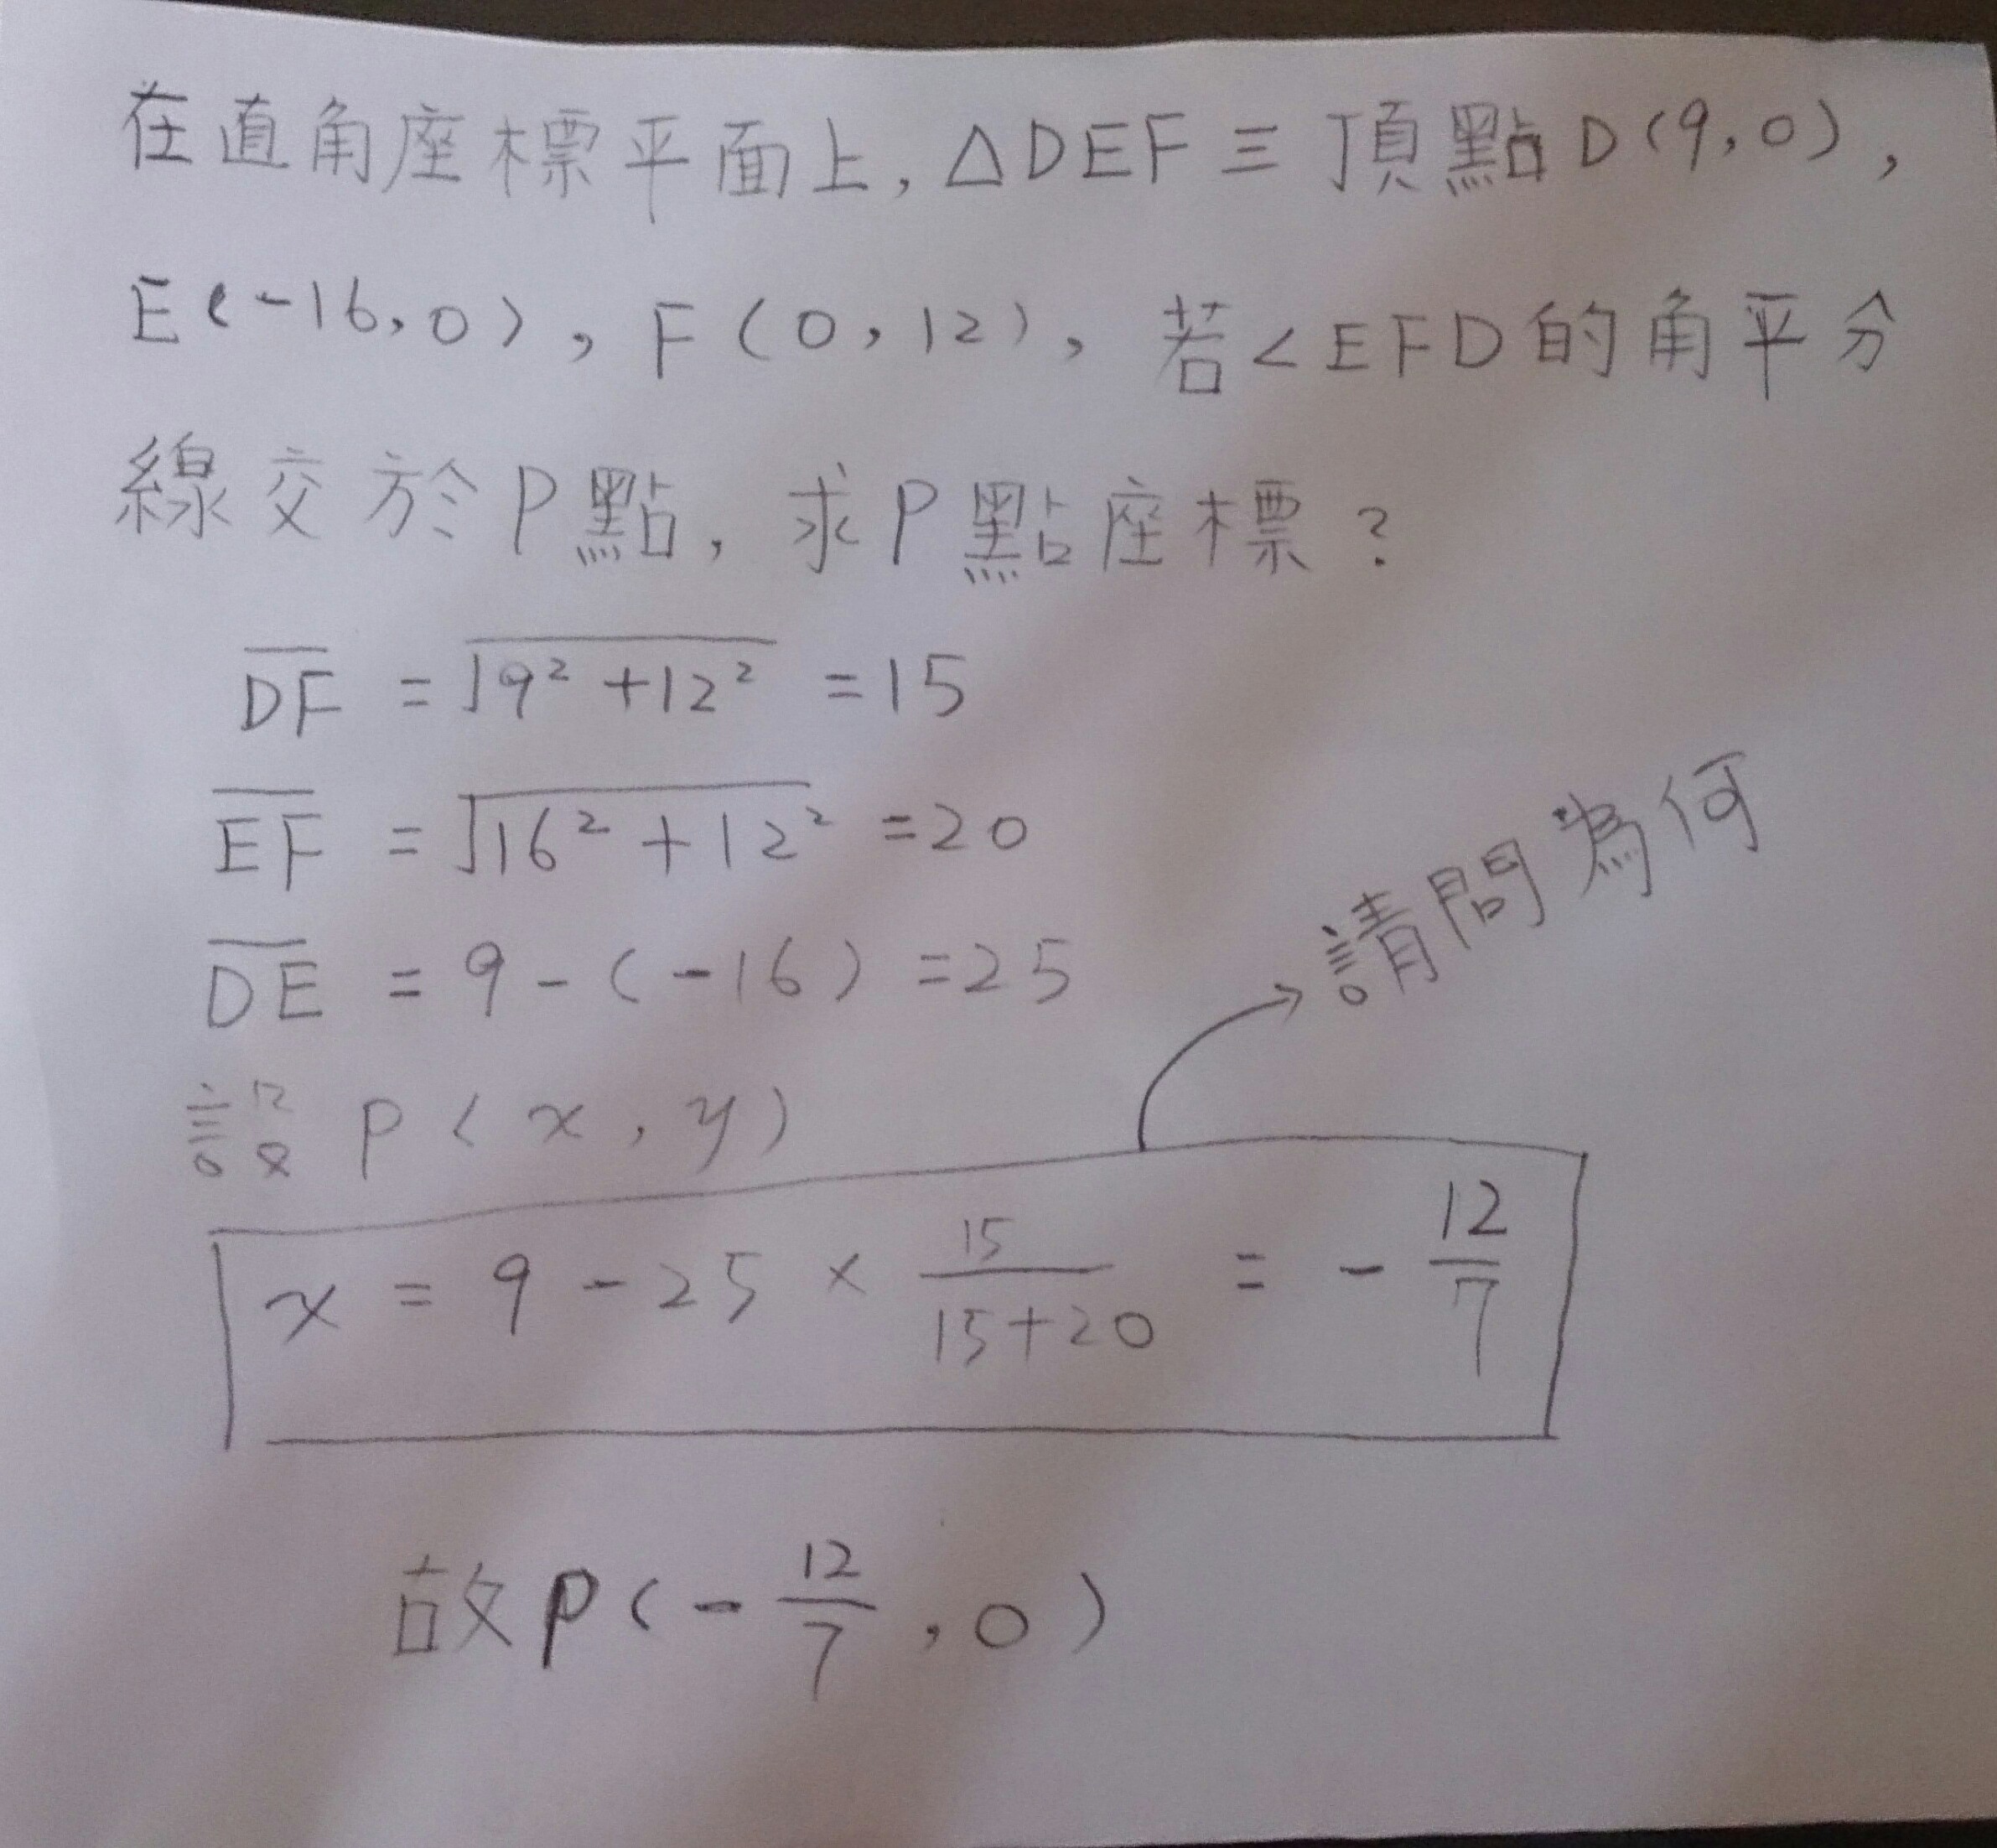 在直角座標平面上,△DEF三頂點D(9,0),
E(-16,0),F(0,12),若∠EFD的角平分
線交於P點,求P點座標?
DF = √9²+12² =15
EF = √16²+12² =20
DE = 9-(-16) =25
請問為何
設 P(x,y)
x = 9-25× 15/15+20 = - 12/7
故P(-12/7,0)